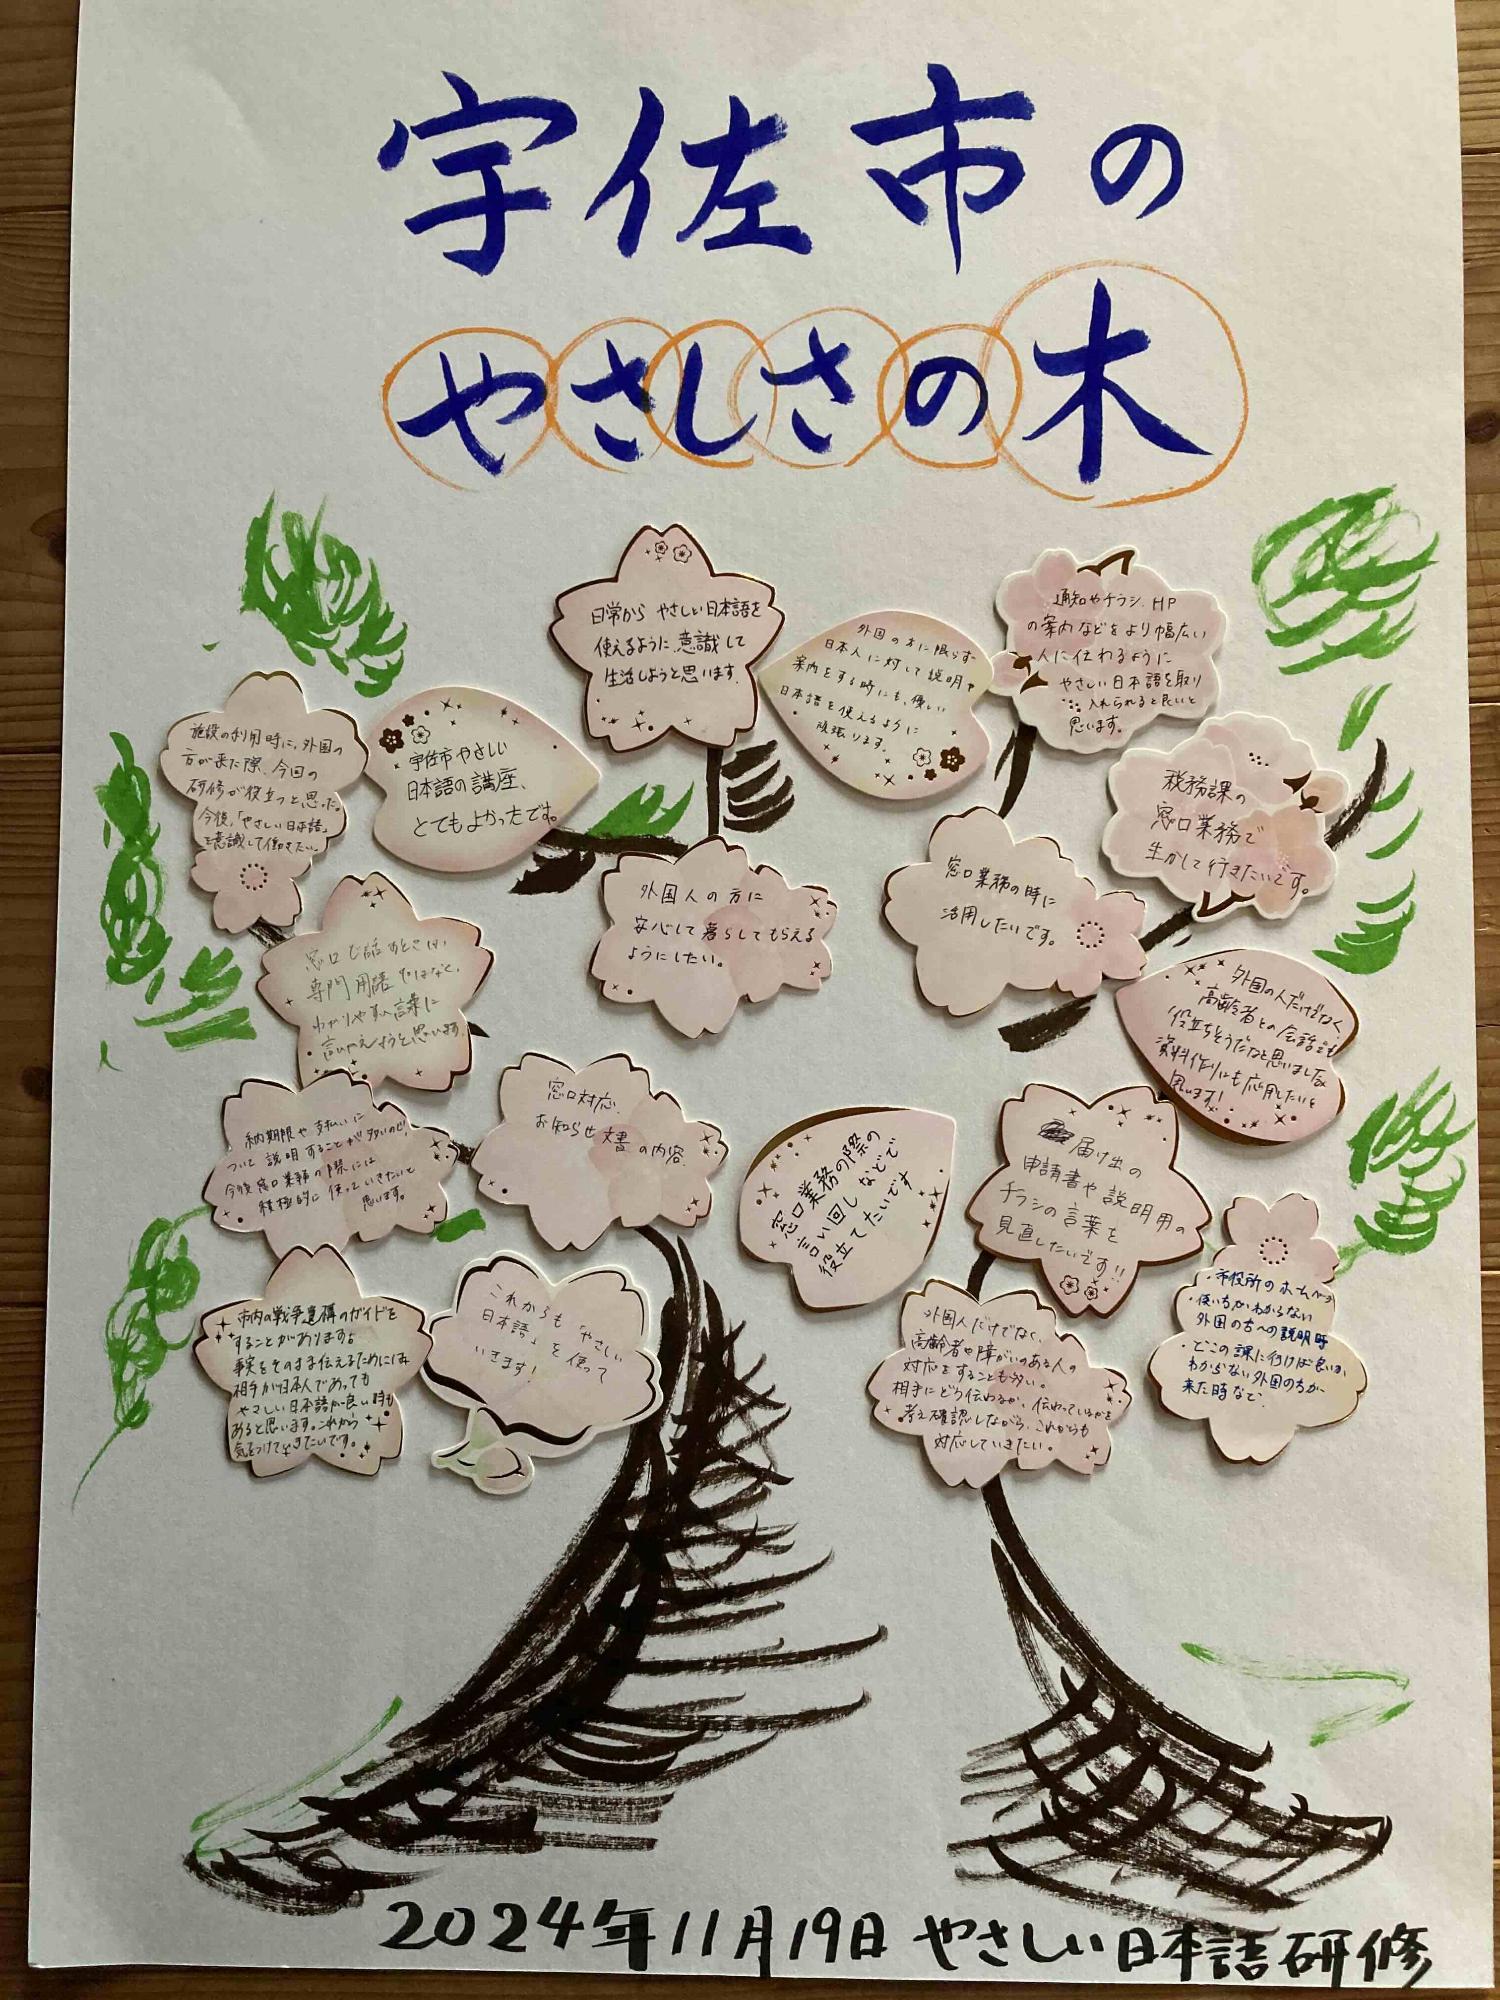 宇佐市の
やさしさの木
日常から やさしい日本語を
使えるように 意識して
生活しようと思います。
外国の方に限らず
日本人に対して説明や
案内をする時にも、優しい
日本語を使えるように
頑張ります。
通知やチラシ、HP
の案内などをより幅広い
人に伝わるように
やさしい日本語を取り
入れられると良いと
思います。
施設の利用時に、外国の
方が来た際、今回の
研修が役立つと思った。
今後、「やさしい日本語」
を意識して働きたい。
宇佐市やさしい
日本語の講座、
とてもよかったです。
税務課の
窓口業務で
生かして行きたいです。
外国人の方に
安心して暮らしてもらえる
ようにしたい。
窓口業務の時に
活用したいです。
窓口で話すときは、
専門用語ではなく、
わかりやすい言葉に
言いかえようと思います
外国の人だけでなく、
高齢者との会話でも
役立ちそうだなと思いました
資料作りにも応用したいと
思います!
納期限や支払いに
ついて説明することが多いので、
今後窓口業務の際には
積極的に使っていきたいと
思います。
窓口対応、
お知らせ文書の内容
窓口業務の際の
言い回しなどで
役立てたいです
届け出の
申請書や説明用の
チラシの言葉を
見直したいです!!
・市役所のホームページ
・使い方がわからない
外国の方への説明時
・どこの課に行けば良いか
わからない外国の方が
来た時など、
市内の戦争遺構のガイドを
することがあります。
事実をそのまま伝えるためには
相手が日本人であっても
やさしい日本語が良い時も
あると思います。これから
気をつけて生きたいです。
これからも「やさしい
日本語」を使って
いきます!
外国人だけでなく、
高齢者や障がいのある人の
対応をすることも多い。
相手にどう伝わるか、伝わっているかを
考え確認しながら、これからも
対応していきたい。
2024年11月19日 やさしい日本語研修